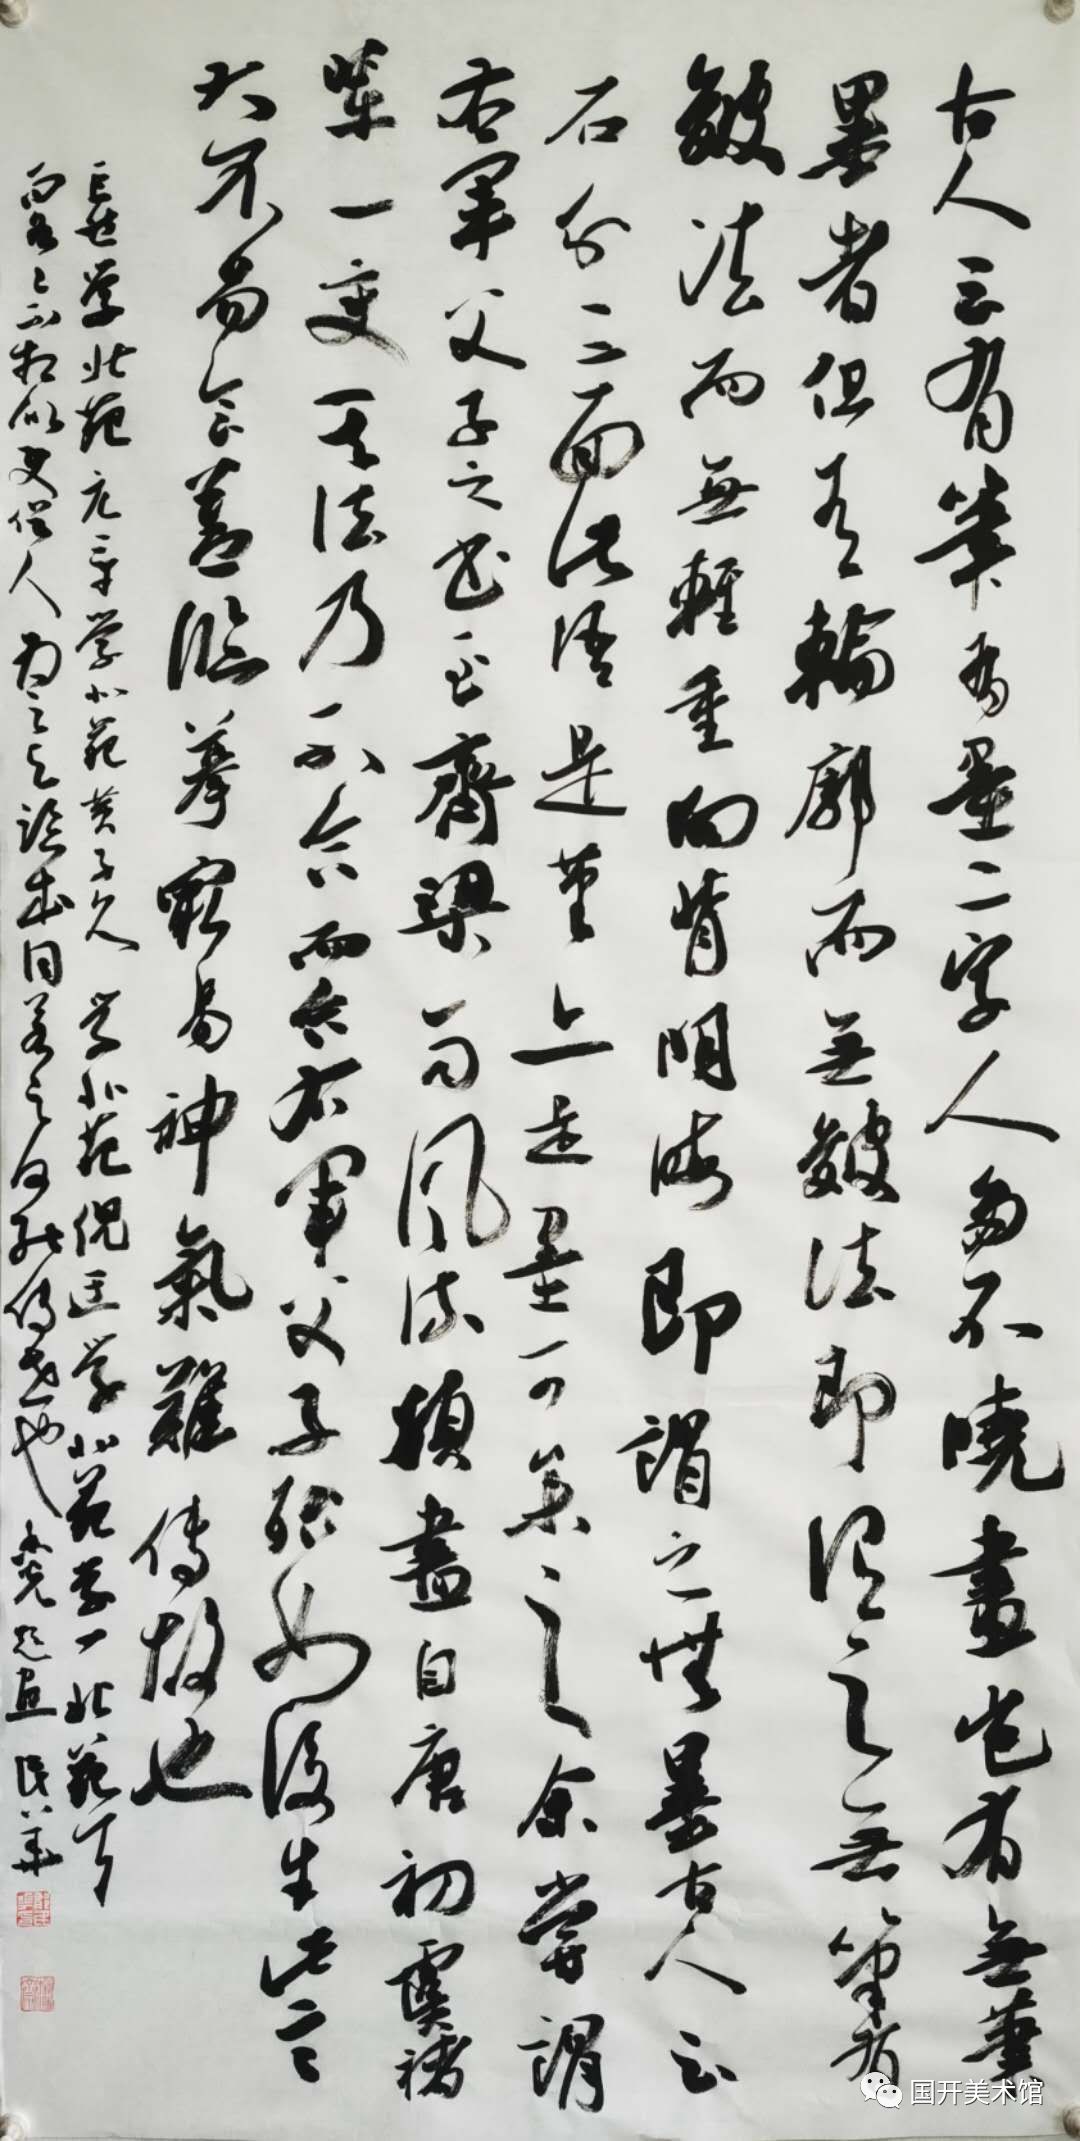 古人云有筆有墨二字人多不曉畫豈有無筆
墨者但有輪廓而無皴法即謂之無筆有
皴法而無輕重向背明晦即謂之無墨古人云
石分三面此語是筆亦是墨可參之余嘗謂
右軍父子之書至齊梁而風流頓盡自唐初虞褚
輩一變其法乃不合而合右軍父子殆如復生此言
大不易會蓋臨摹最易神氣難傳故也
巨然学北苑元章学北苑黄子久学北苑倪迂学北苑学一北苑耳
而各各不相似使俗人為之与臨本同若之何能傳世也 民華
国开美术馆